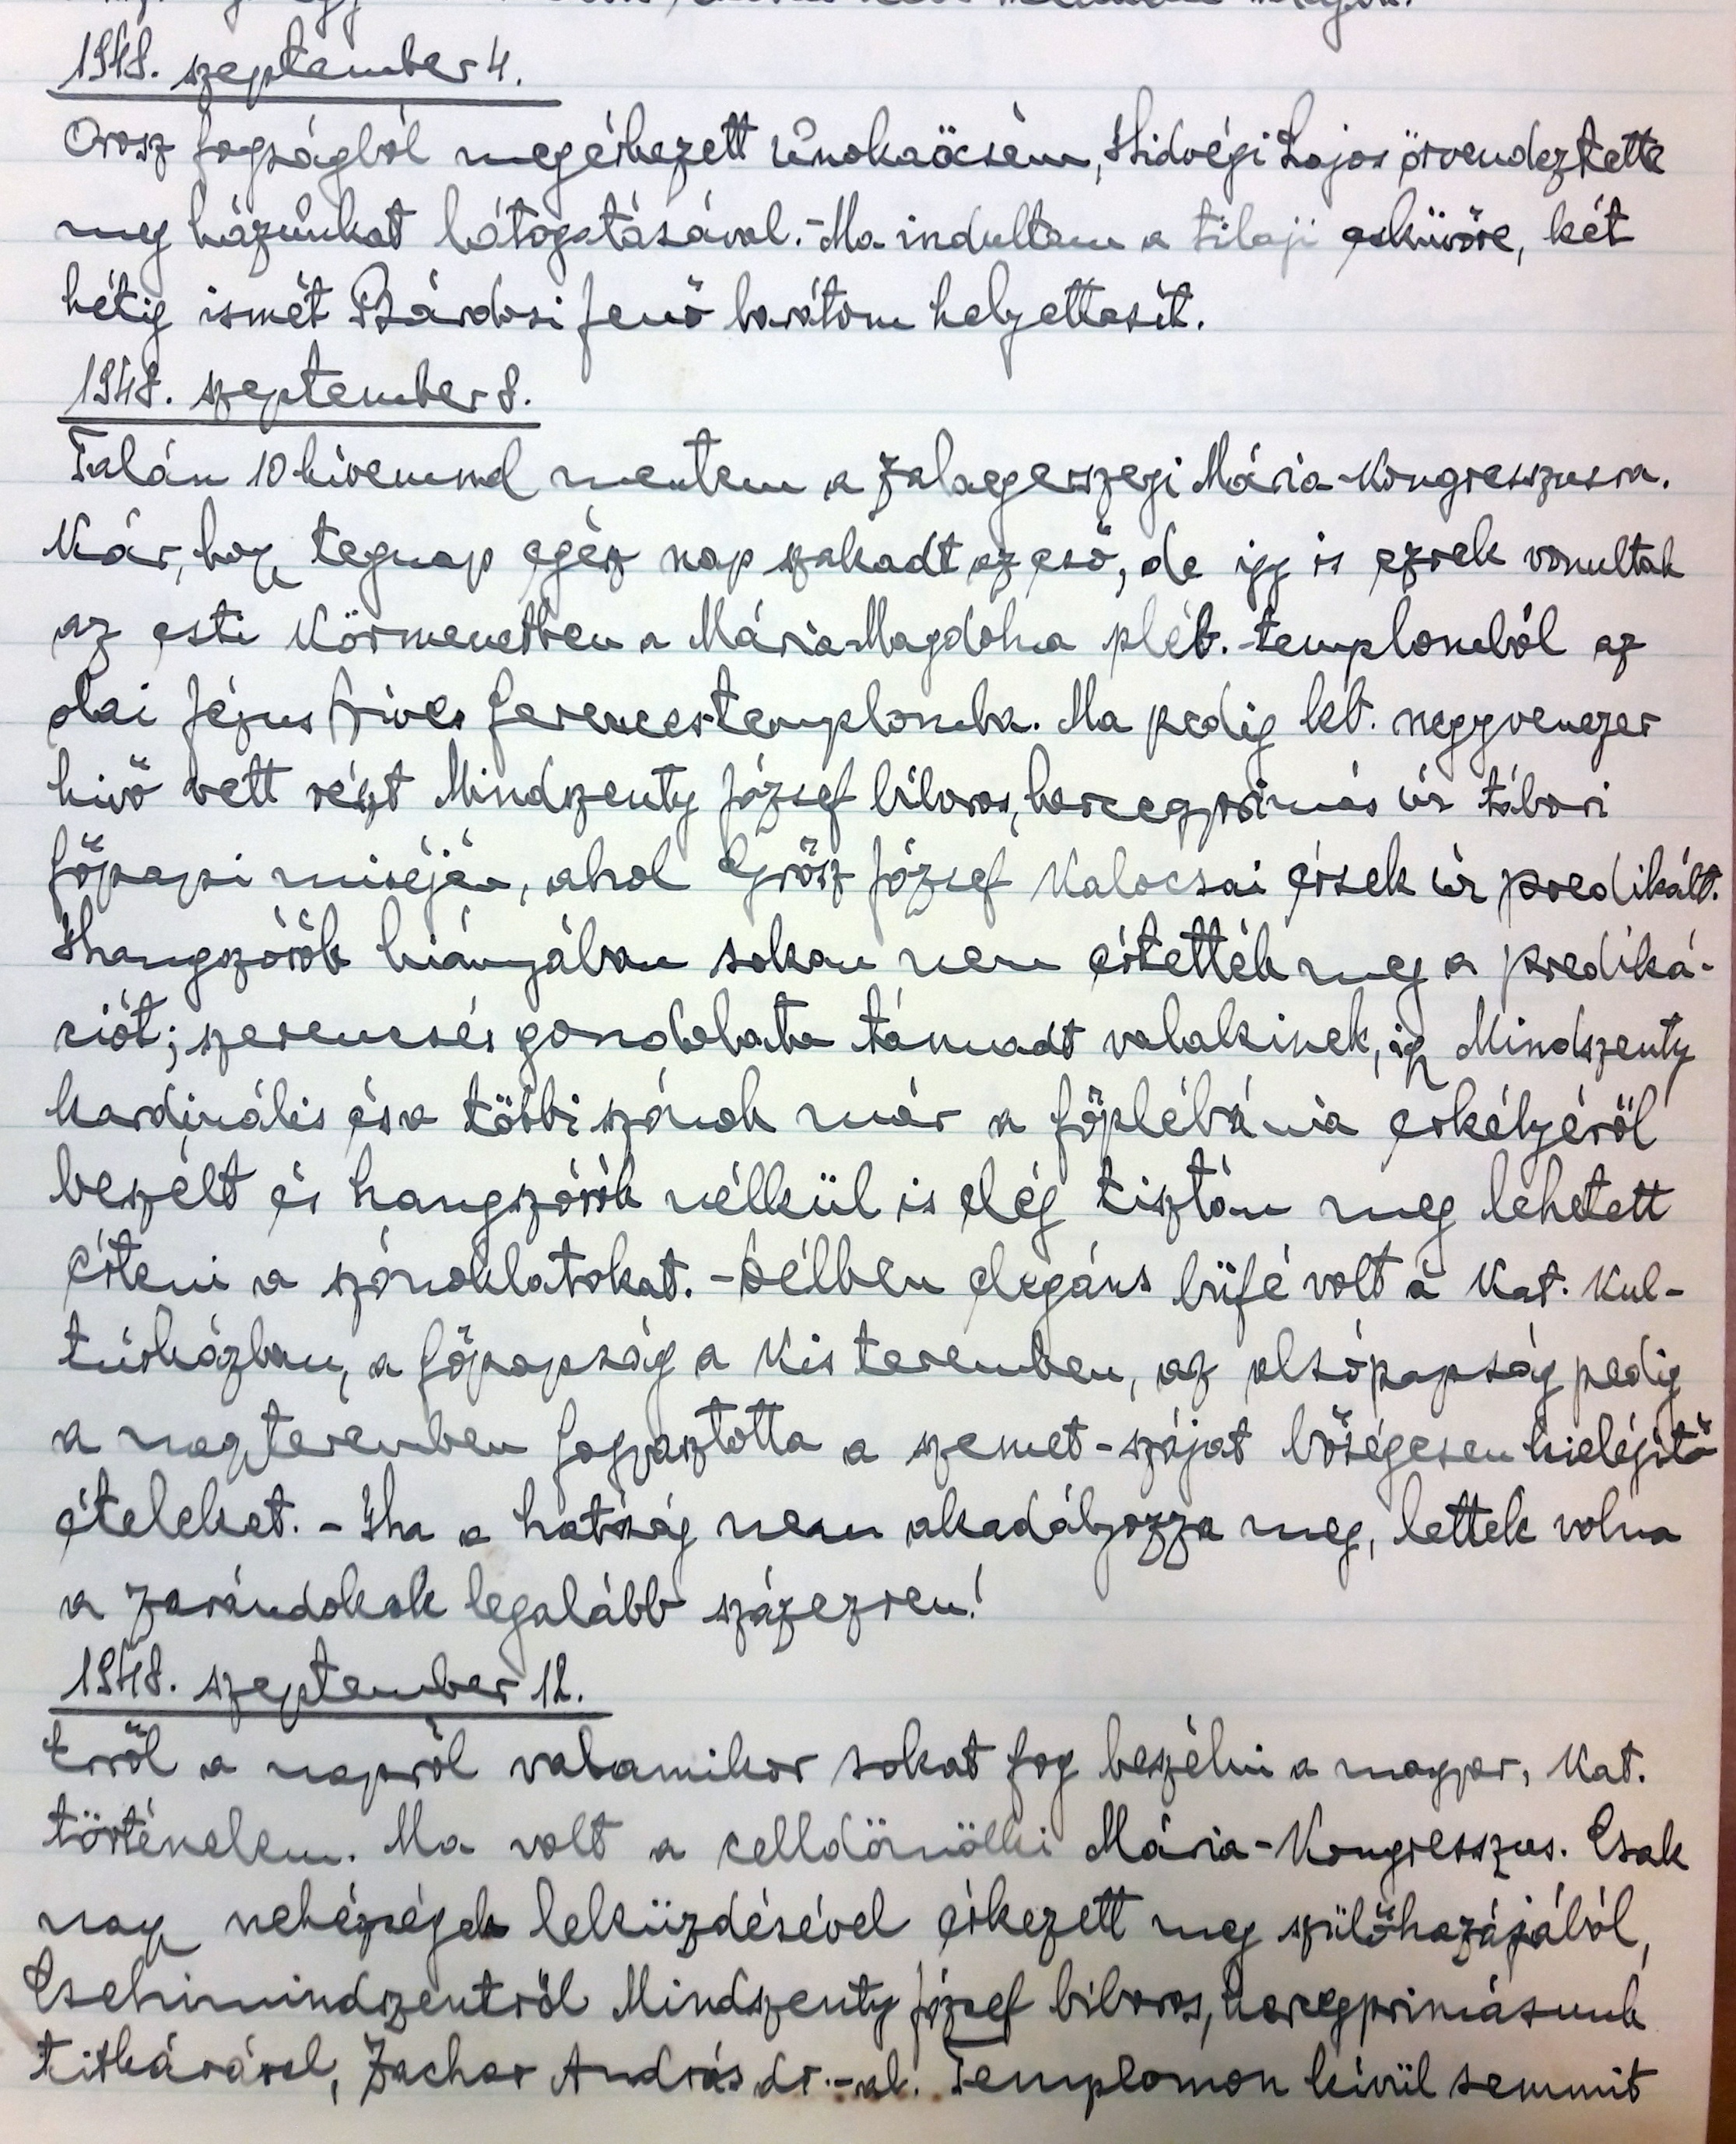 1948. szeptember 4.
Orosz fogságból megérkezett unokaöcsém, Hidvégi Lajos örvendeztette
meg házunkat látogatásával. - Ma indultam a tilaji esküvőre, két
hétig ismét Bárdosi Jenő barátom helyettesít.
1948. szeptember 8.
Talán 10 hivemmel mentem a zalaegerszegi Mária-Kongresszusra.
Kár, hogy tegnap egész nap szakadt az eső, de így is ezrek vonultak
az esti körmenetben a Mária Magdolna pléb.-templomból az
olai Jézus Szíves ferencestemplomba. Ma pedig kb. negyvenezer
hivő vett részt Mindszenty József bíboros, hercegprimás úr tábori
főpapi miséjén, ahol Grősz József Kalocsai érsek úr predikált.
Hangszórók hiányában sokan nem értették meg a prediká-
ciót; szerencsés gondolata támadt valakinek, így Mindszenty
kardinális és a többi szónok már a főplébánia erkélyéről
beszélt és hangszórók nélkül is elég tisztán meg lehetett
érteni a szónoklatokat. - Délben elegáns büfé volt a Kat. Kul-
túrházban, a főpapság a kis teremben, az alsópapság pedig
a nagyteremben fogyasztotta a szemet-szájat bőségesen kielégítő
ételeket. - Ha a hatóság nem akadályozza meg, lettek volna
a zarándokok legalább százezren!
1948. szeptember 12.
Erről a napról valamikor sokat fog beszélni a magyar, Kat.
történelem. Ma volt a celldömölki Mária-Kongresszus. Csak
nagy nehézségek leküzdésével érkezett meg szülőházájából,
Csehimindszentről Mindszenty József bíboros, hercegprimásunk
titkárával, Zachar András dr.-al. Templomon kívül semmit